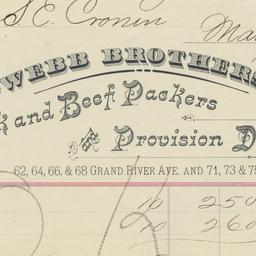 S.E. Cronin Ma
WEBB BROTHERS
k and Beef Packers
and Provision D
62, 64, 66, & 68 GRAND RIVER AVE. AND 71, 73 & 75
10 250
10 260